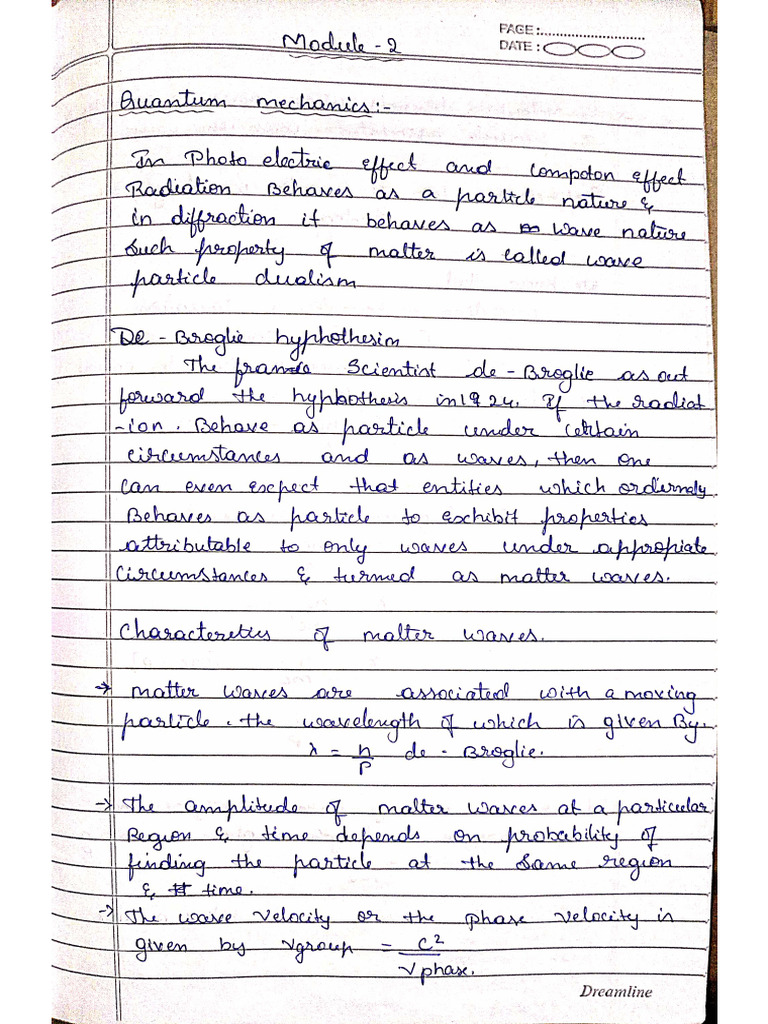 Module - 2
PAGE :............................
DATE :
Quantum mechanics:-
In Photo electric effect and Compton effect
Radiation Behaves as a particle nature &
in diffraction it behaves as wave nature
Such property of matter is called wave
particle dualism
De - Broglie hyphothesim
The Scientist de - Broglie as out
forward the hyphothesis in 1924. If the radiat
-ion. Behave as particle under certain
circumstances and as waves, then one
can even expect that entities which orderndy
Behaves as particle to exhibit properties
attributable to only waves under appropiate
Circumstances & turmed as matter waves.
Characteretics of matter waves.
→ matter waves are associated with a moving
particle. the wavelength of which is given By.
λ = h/P de - Broglie.
→ The amplitude of matter waves at a particular
Region & time depends on probability of
finding the particle at the same region
& time.
→ The wave velocity or the phase velocity is
given by vgroup = C²/vphase.
Dreamline